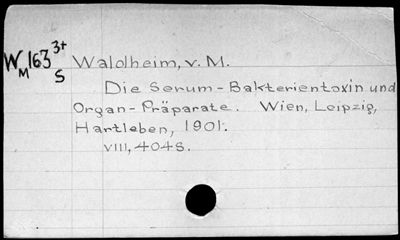 W M 163 3+ S Walolheim, v. M.
Die Serum-Bakterientoxin und
Organ-Präparate. Wien, Leipzig,
Hartleben, 1901.
VIII, 404 S.